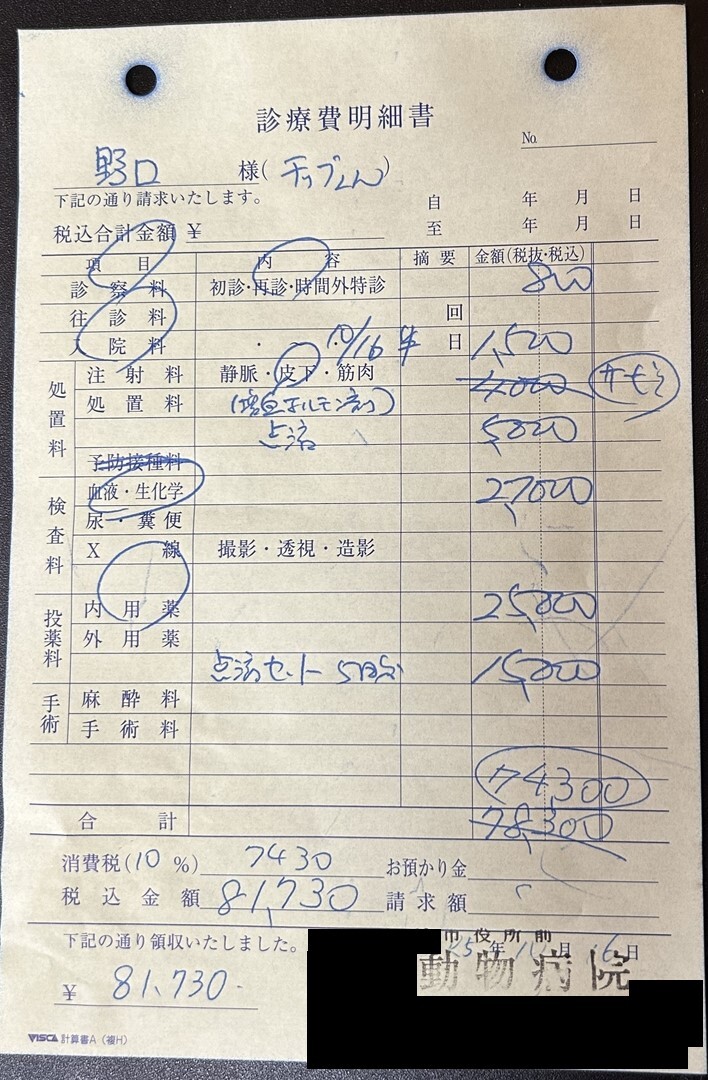 診療費明細書
No.
野口 様(チップくん)
下記の通り請求いたします。 自 年 月 日
税込合計金額 ¥ 至 年 月 日
項目 内容 摘要 金額(税抜・税込)
診察料 初診・再診・時間外特診 800
往診料 回
入院料 ・ ・ 10/16 半 日 1,500
処置料
注射料 静脈・皮下・筋肉 4000 サービス
処置料
点滴 5000
予防接種料
検査料
血液・生化学 27,000
尿・糞便
X線 撮影・透視・造影
投薬料
内用薬 25,000
外用薬
点滴セット 5日分 15,000
手術
麻酔料
手術料
74,300
合計 78,300
消費税(10%) 7430 お預かり金
税込金額 81,730 請求額
下記の通り領収いたしました。
市役所前
25年 月 16日
動物病院
¥ 81,730-
VISCA 計算書A(複H)